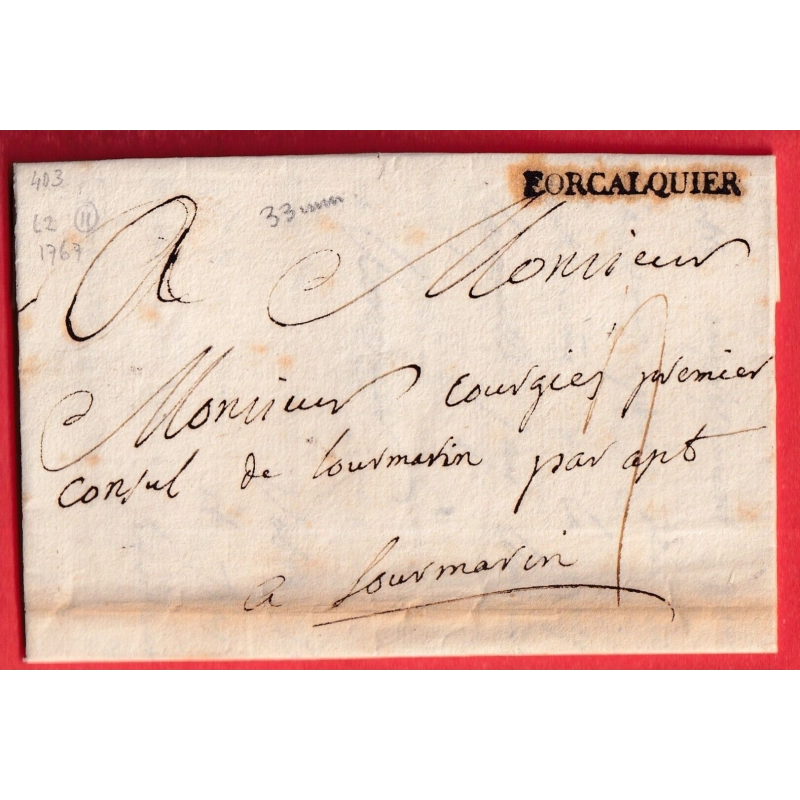 403
33 mm
FORCALQUIER
L2 11
1767
A Monsieur
Monsieur courgies premier
consul de lourmarin par apt
a Lourmarin